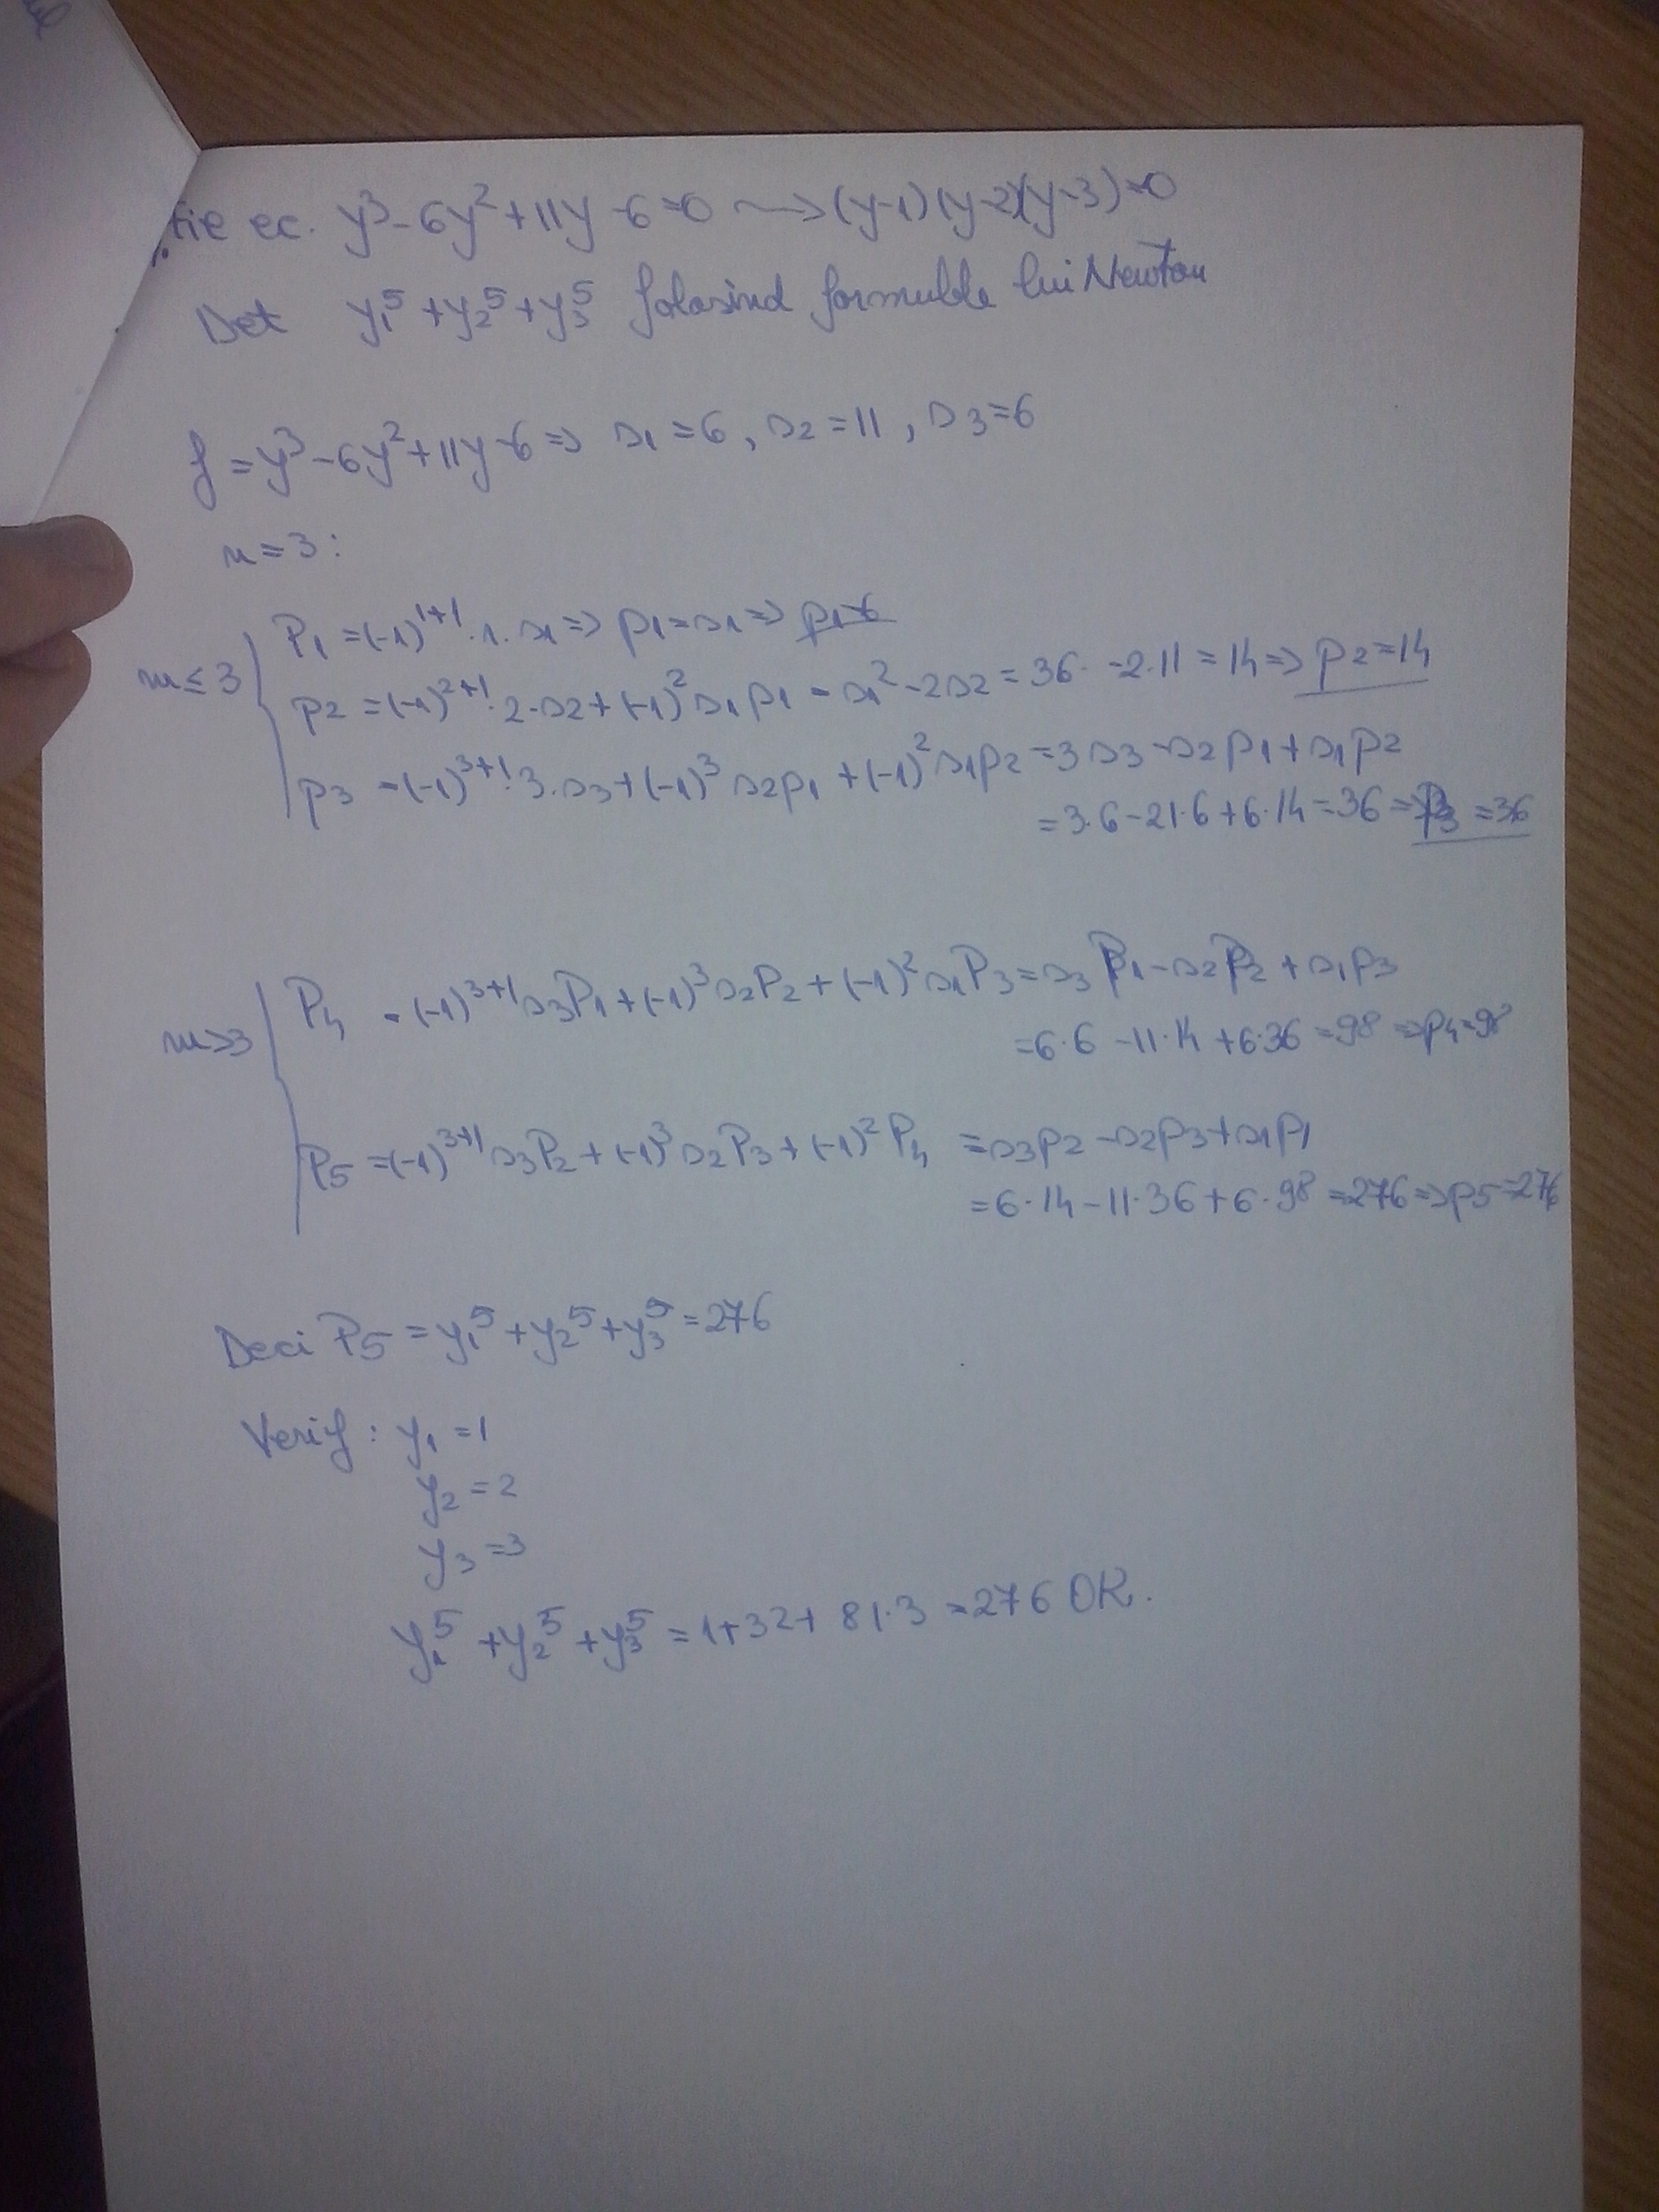 Fie ec. y³-6y²+11y-6=0 ⟿ (y-1)(y-2)(y-3)=0
Det y₁⁵+y₂⁵+y₃⁵ folosind formulele lui Newton
f=y³-6y²+11y-6 ⇒ s₁=6, s₂=11, s₃=6
n=3:
m≤3
P₁=(-1)¹⁺¹·1·s₁ ⇒ p₁=s₁ ⇒ p₁=6
p₂=(-1)²⁺¹·2·s₂+(-1)²s₁p₁=s₁²-2s₂=36-2·11=14 ⇒ p₂=14
p₃=(-1)³⁺¹·3·s₃+(-1)³s₂p₁+(-1)²s₁p₂=3s₃-s₂p₁+s₁p₂
=3·6-21·6+6·14=36 ⇒ p₃=36
m>3
P₄=(-1)³⁺¹s₃P₁+(-1)³s₂P₂+(-1)²s₁P₃=s₃P₁-s₂P₂+s₁p₃
=6·6-11·14+6·36=98 ⇒ p₄=98
P₅=(-1)³⁺¹s₃P₂+(-1)³s₂P₃+(-1)²P₄=s₃p₂-s₂p₃+s₁p₁
=6·14-11·36+6·98=276 ⇒ p₅=276
Deci P₅=y₁⁵+y₂⁵+y₃⁵=276
Verif: y₁=1
y₂=2
y₃=3
y₁⁵+y₂⁵+y₃⁵=1+32+81·3=276 OK.